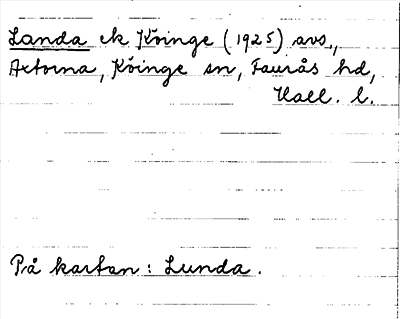 Landa ek Köinge (1925) avs.,
Axtorna, Köinge sn, Faurås hd,
Hall. l.
På kartan: Lunda.